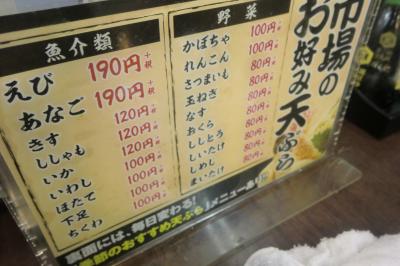 市場の
お好み天ぷら
魚介類
えび 190円+税
あなご 190円+税
きす 120円+税
ししゃも 120円+税
いか 120円+税
いわし 100円+税
ほたて 100円+税
下足 100円+税
ちくわ 100円+税
野菜
かぼちゃ 100円+税
れんこん 100円+税
さつまいも 80円+税
玉ねぎ 80円+税
なす 80円+税
おくら 80円+税
ししとう 80円+税
しいたけ 80円+税
しめじ 80円+税
まいたけ 80円+税
裏面には、毎日変わる!
季節のおすすめ天ぷらメニューあり